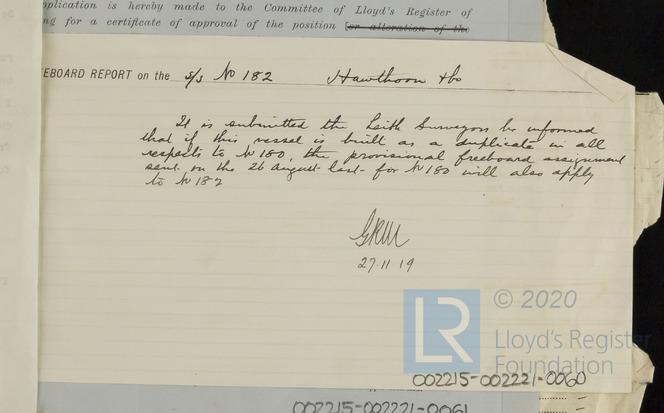 pplication is hereby made to the Committee of Lloyd's Register of
ng for a certificate of approval of the position [or alteration of the
EBOARD REPORT on the s/s No 182 Hawthorn & Co
It is submitted the Leith Surveyors be informed
that if this vessel is built as a duplicate in all
respects to No 180, the provisional freeboard assignment
sent on the 26 August last for No 180 will also apply
to No 182
27.11 19
LR © 2020
Lloyd's Register
Foundation
002215-002221-0060
002215-002221-0061